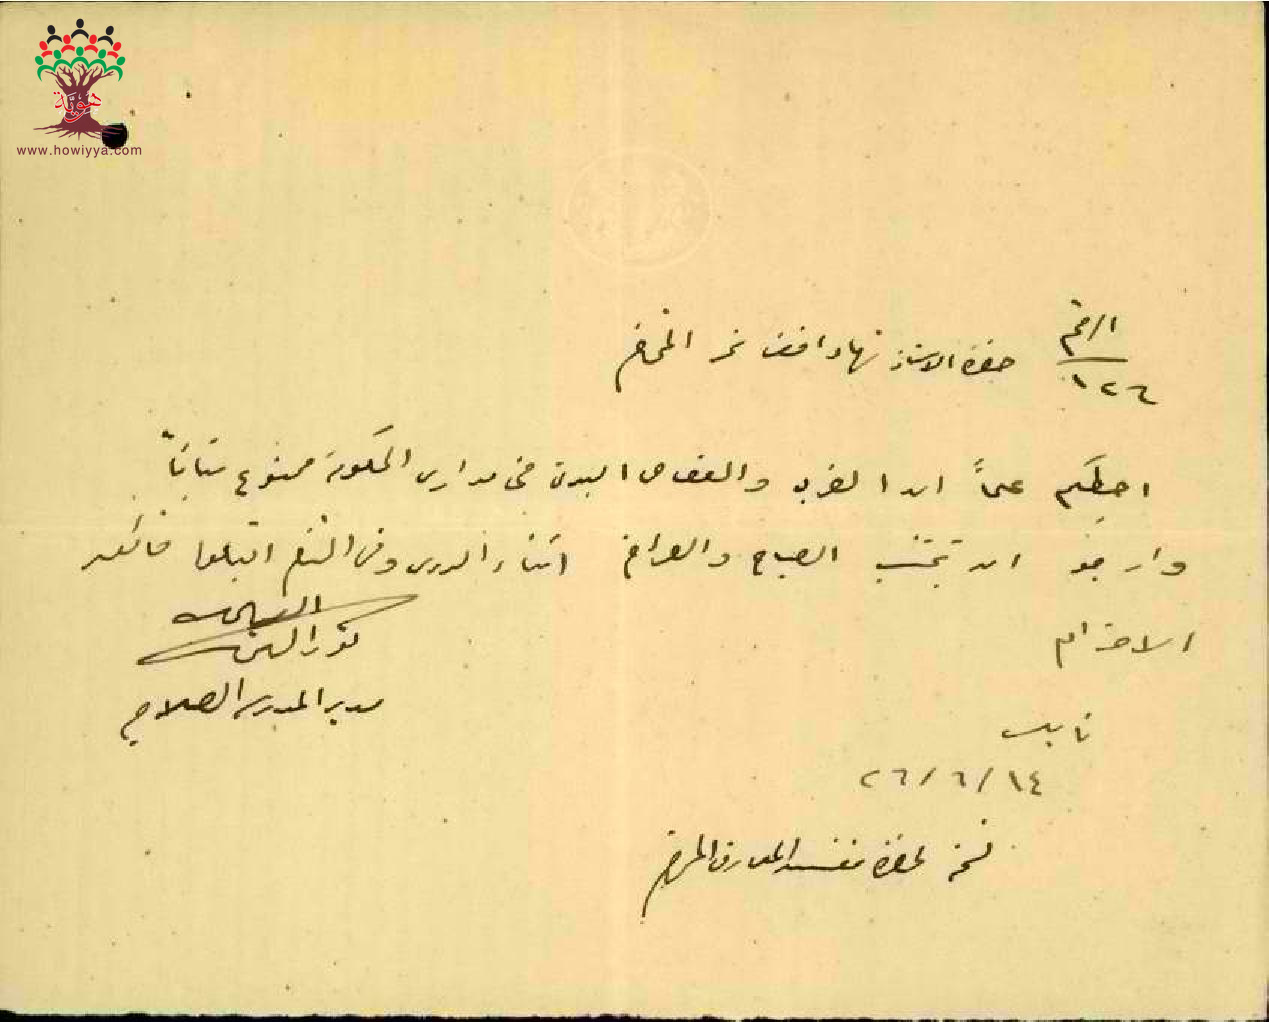 هوية
www.howiyya.com
الرقم
١٢٦
حضرة الاستاذ نهاد افندي نمر المحترم
احيطكم علماً ان الضرب والقصاص البدني في مدارس الحكومة ممنوع بتاتاً
وارجو ان تجتنب الصياح والصراخ اثناء الدرس وفي الختام اقبلوا فائق
الاحترام
نور الدين
مدير المدرسة الصلاحية
نابلس
١٤/٦/٢٦
نسخة لحضرة مفتش المعارف المحترم